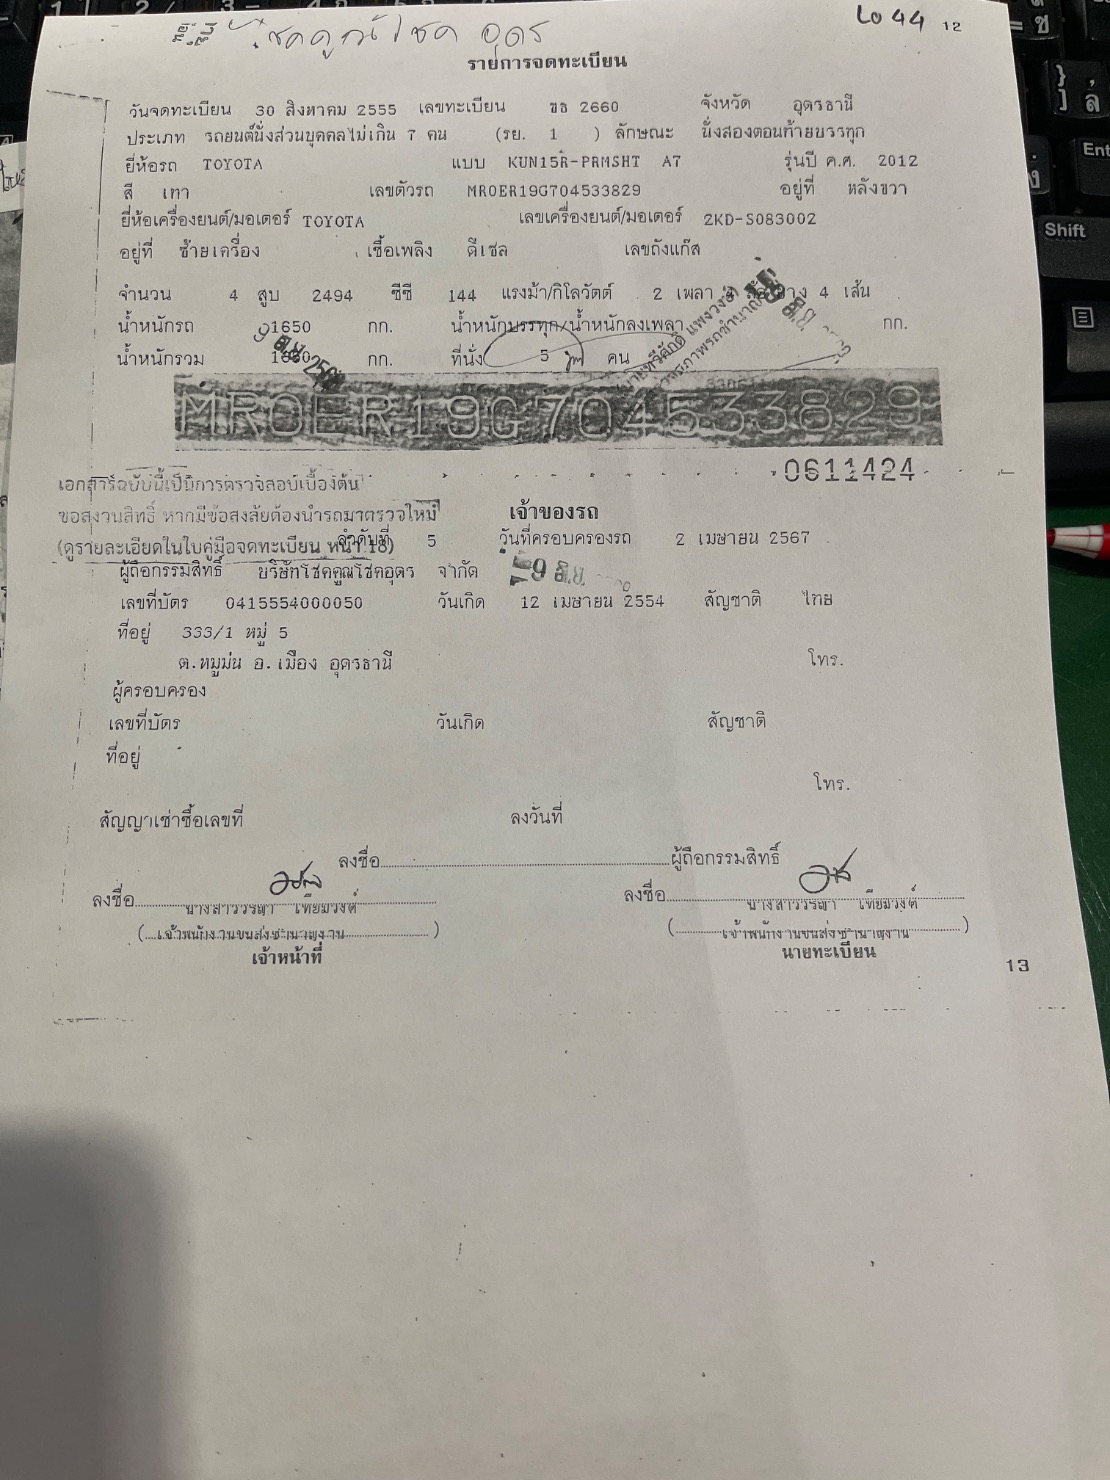 โชคคูณโชค อุดร
Lo 44 12
รายการจดทะเบียน
วันจดทะเบียน 30 สิงหาคม 2555 เลขทะเบียน ขธ 2660 จังหวัด อุดรธานี
ประเภท รถยนต์นั่งส่วนบุคคลไม่เกิน 7 คน (รย. 1 ) ลักษณะ นั่งสองตอนท้ายบรรทุก
ยี่ห้อรถ TOYOTA แบบ KUN15R-PRMSHT A7 รุ่นปี ค.ศ. 2012
สี เทา เลขตัวรถ MROER19G704533829 อยู่ที่ หลังขวา
ยี่ห้อเครื่องยนต์/มอเตอร์ TOYOTA เลขเครื่องยนต์/มอเตอร์ 2KD-S083002
อยู่ที่ ซ้ายเครื่อง เชื้อเพลิง ดีเซล เลขถังแก๊ส
จำนวน 4 สูบ 2494 ซีซี 144 แรงม้า/กิโลวัตต์ 2 เพลา ล้อ ยาง 4 เส้น
น้ำหนักรถ 1650 กก. น้ำหนักบรรทุก/น้ำหนักลงเพลา กก.
น้ำหนักรวม กก. ที่นั่ง 5 คน
MROER19G704533829
0611424
เอกสารฉบับนี้เป็นการตรวจสอบเบื้องต้น
ขอสงวนสิทธิ์ หากมีข้อสงสัยต้องนำรถมาตรวจใหม่ เจ้าของรถ
(ดูรายละเอียดในใบคู่มือจดทะเบียน หน้า 18) ลำดับที่ 5 วันที่ครอบครองรถ 2 เมษายน 2567
ผู้ถือกรรมสิทธิ์ บริษัทโชคคูณโชคอุดร จำกัด
เลขที่บัตร 0415554000050 วันเกิด 12 เมษายน 2554 สัญชาติ ไทย
ที่อยู่ 333/1 หมู่ 5
ต.หมูม่น อ.เมือง อุดรธานี โทร.
ผู้ครอบครอง
เลขที่บัตร วันเกิด สัญชาติ
ที่อยู่
โทร.
สัญญาเช่าซื้อเลขที่ ลงวันที่
ลงชื่อ ผู้ถือกรรมสิทธิ์
ลงชื่อ นางสาววรรณา เทียมวงค์ ลงชื่อ นางสาววรรณา เทียมวงค์
(เจ้าพนักงานขนส่งชำนาญงาน) (เจ้าพนักงานขนส่งชำนาญงาน)
เจ้าหน้าที่ นายทะเบียน
13